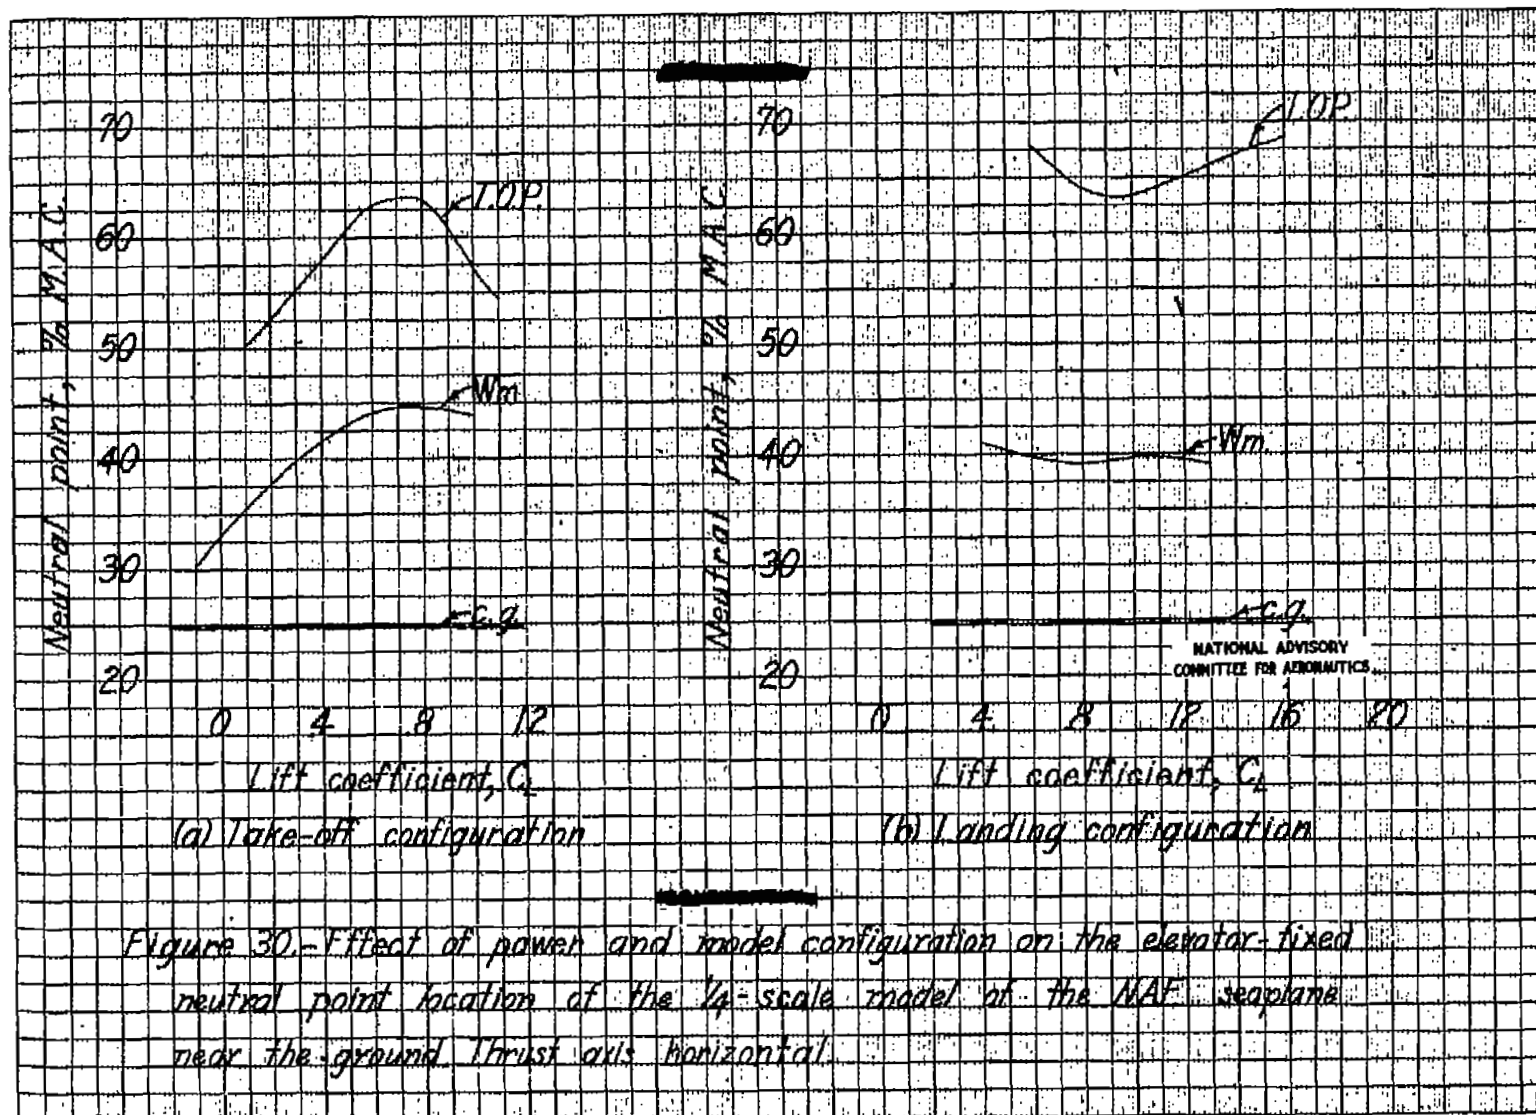 70
60
50
40
30
20
Neutral point, % M.A.C.
T.O.P.
Wm
c.g.
0 .4 .8 1.2
Lift coefficient, CL
(a) Take-off configuration
70
60
50
40
30
20
Neutral point, % M.A.C.
T.O.P.
Wm.
c.g.
NATIONAL ADVISORY
COMMITTEE FOR AERONAUTICS
0 .4 .8 1.2 1.6 2.0
Lift coefficient, CL
(b) Landing configuration
Figure 30.-Effect of power and model configuration on the elevator-fixed
neutral point location of the 1/4-scale model of the NAF seaplane
near the ground. Thrust axis horizontal.